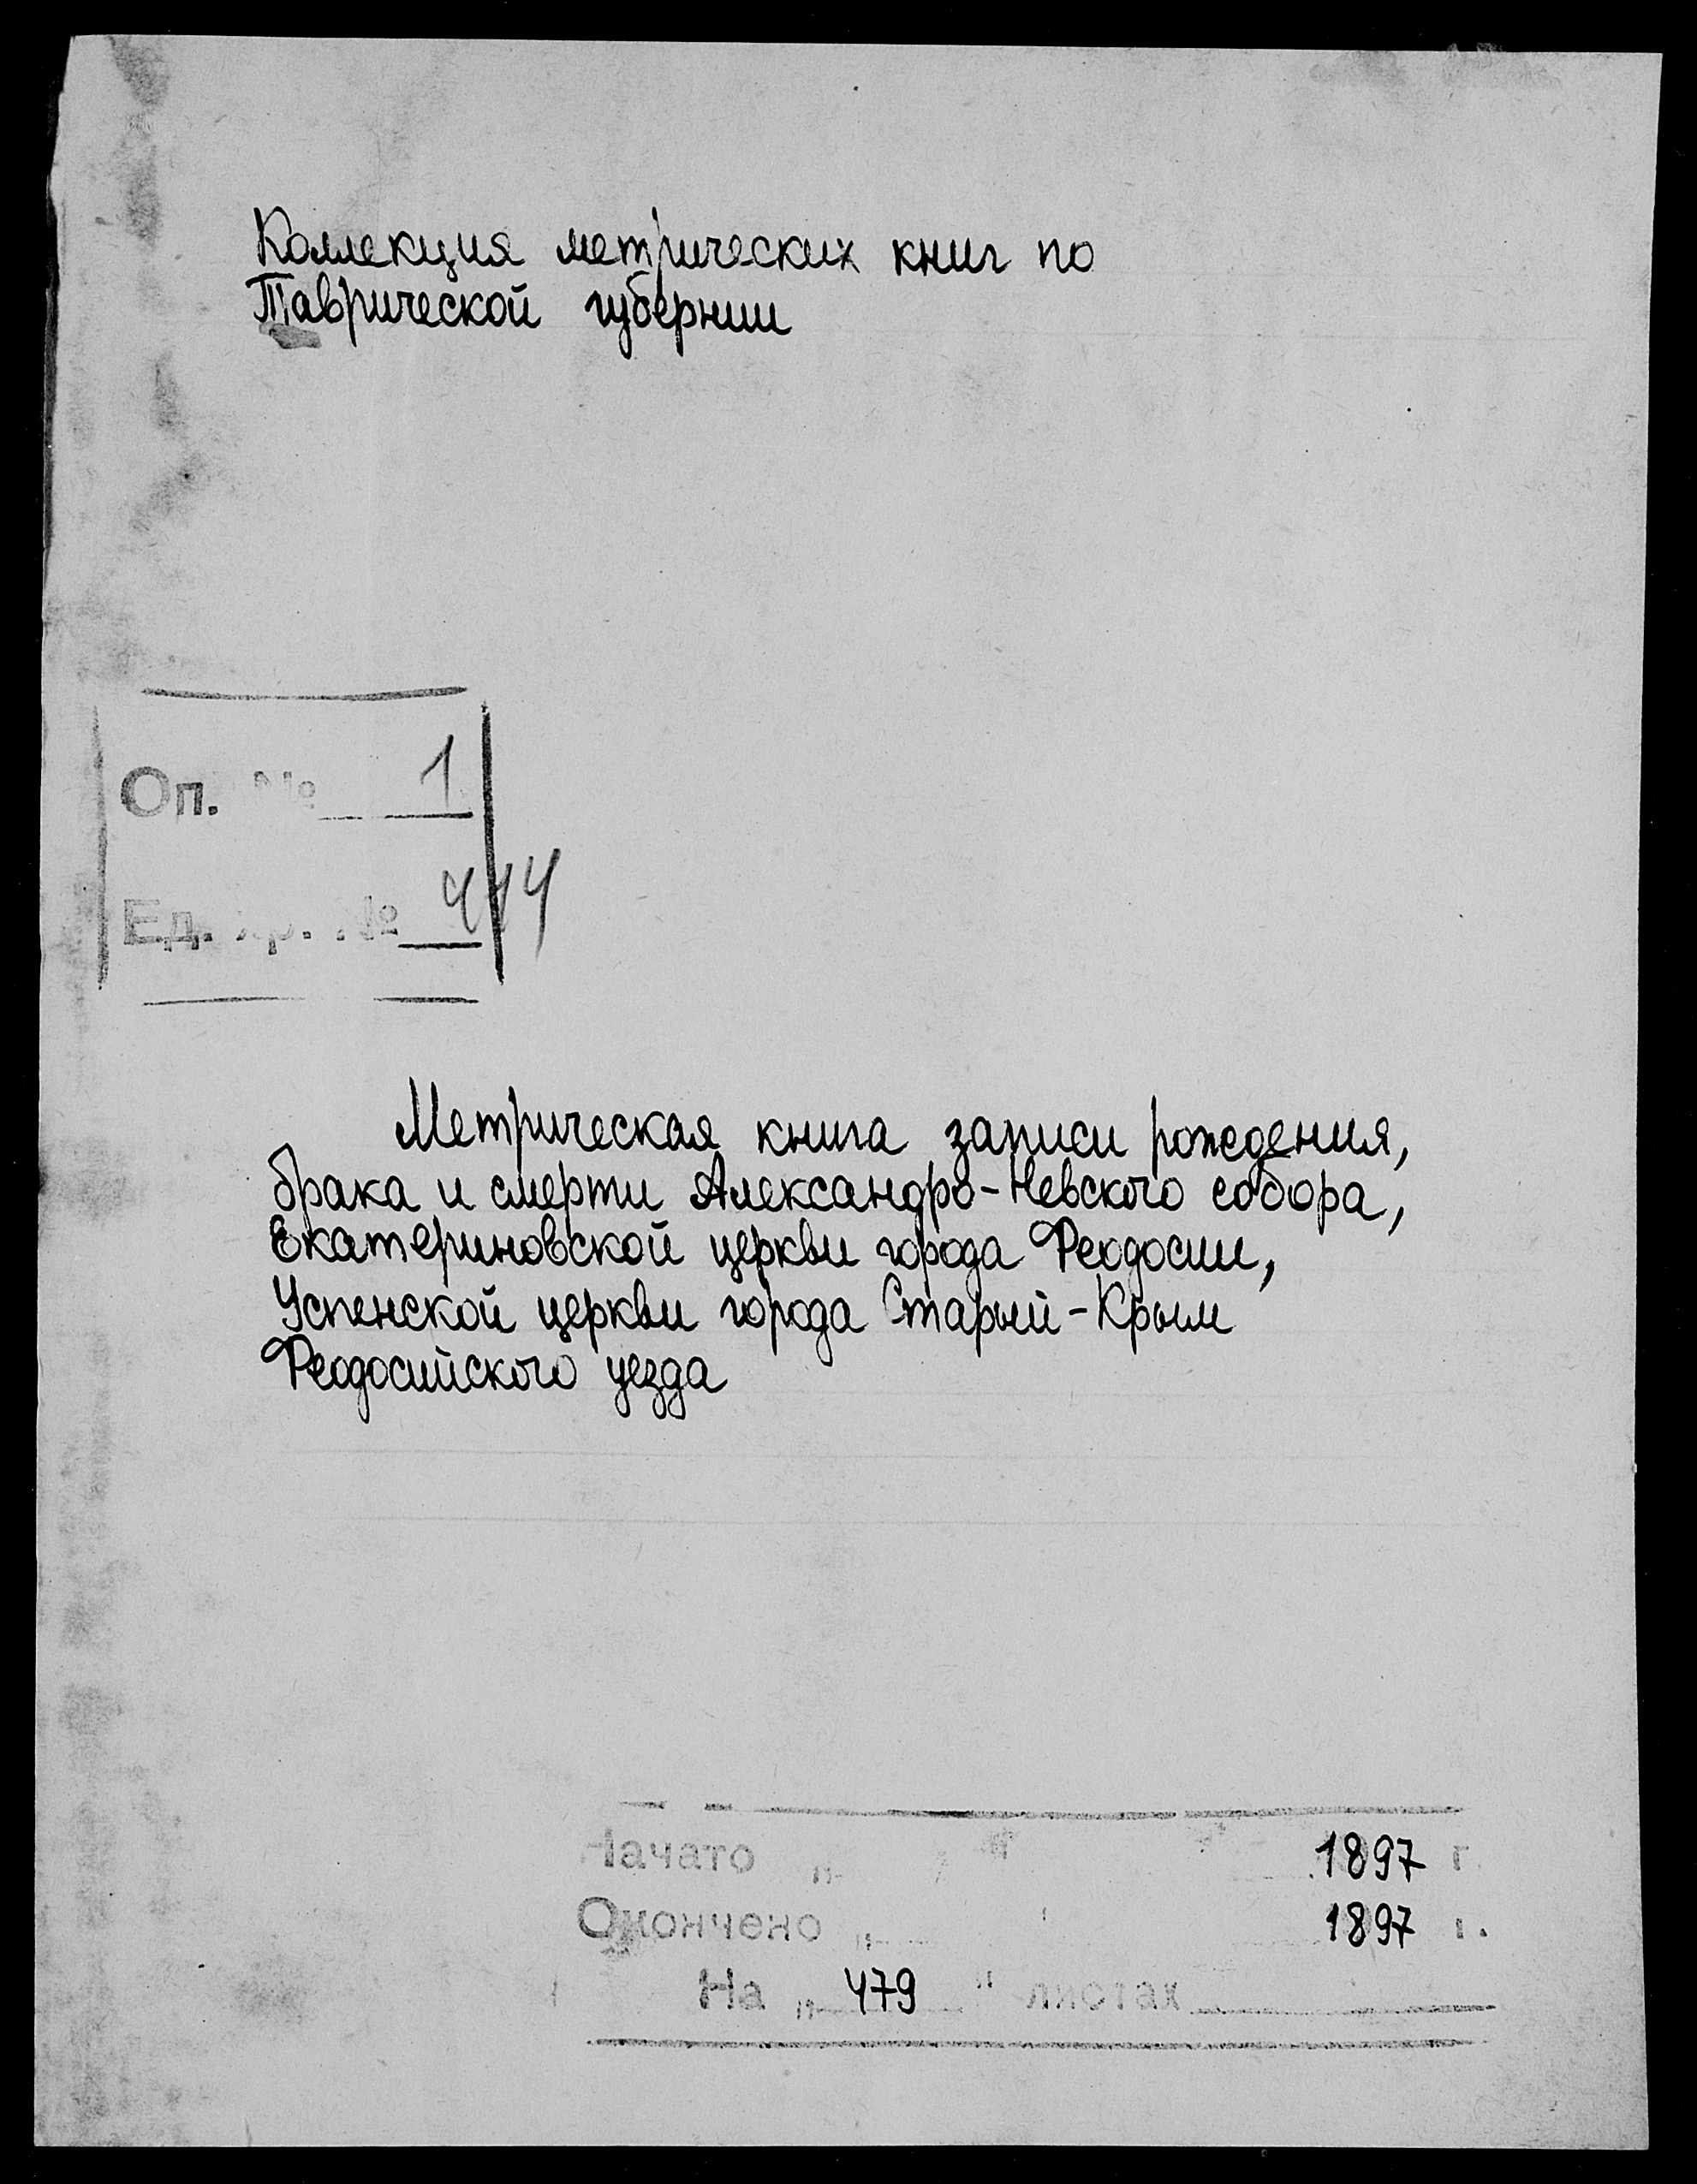 Коллекция метрических книг по
Таврической губернии
Оп. № 1
Ед. хр. № 414
Метрическая книга записи рождения,
брака и смерти Александро-Невского собора,
Екатериновской церкви города Феодосии,
Успенской церкви города Старый-Крым
Феодосийского уезда
Начато „ " 1897 г
Окончено „ 1897 г.
На „ 479 " листах